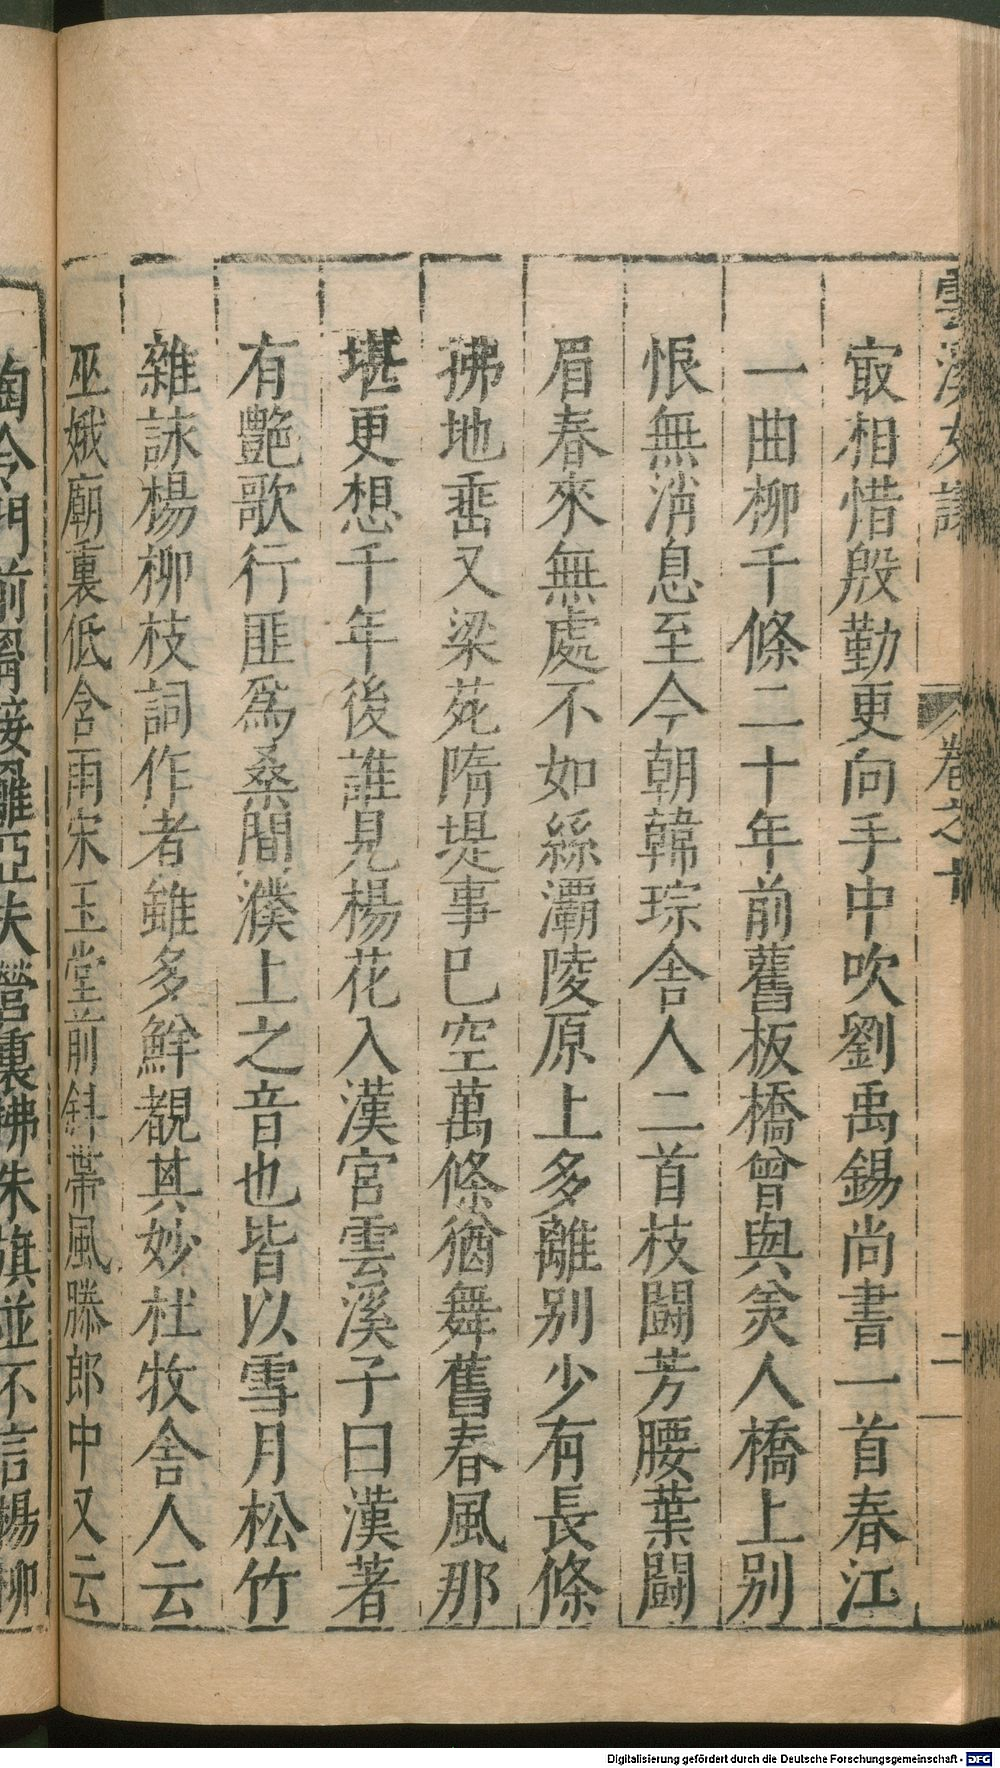 雲溪友議
卷之十
二
㝡相惜殷勤更向手中吹劉禹錫尚書一首春江
一曲柳千條二十年前舊板橋曾與美人橋上別
恨無消息至今朝韓琮舍人二首枝鬭芳腰葉鬭
眉春來無處不如絲灞陵原上多離别少有長條
拂地垂又梁苑隋堤事已空萬條猶舞舊春風那
堪更想千年後誰見楊花入漢宮雲溪子曰漢著
有艷歌行匪爲桑間濮上之音也皆以雪月松竹
雜詠楊柳枝詞作者雖多鮮覩其妙杜牧舍人云
巫娥廟裏低含雨宋玉堂前斜帶風滕郎中又云
陶令門前罥接䍦亞夫營裏拂朱旗並不言楊柳
Digitalisierung gefördert durch die Deutsche Forschungsgemeinschaft - DFG